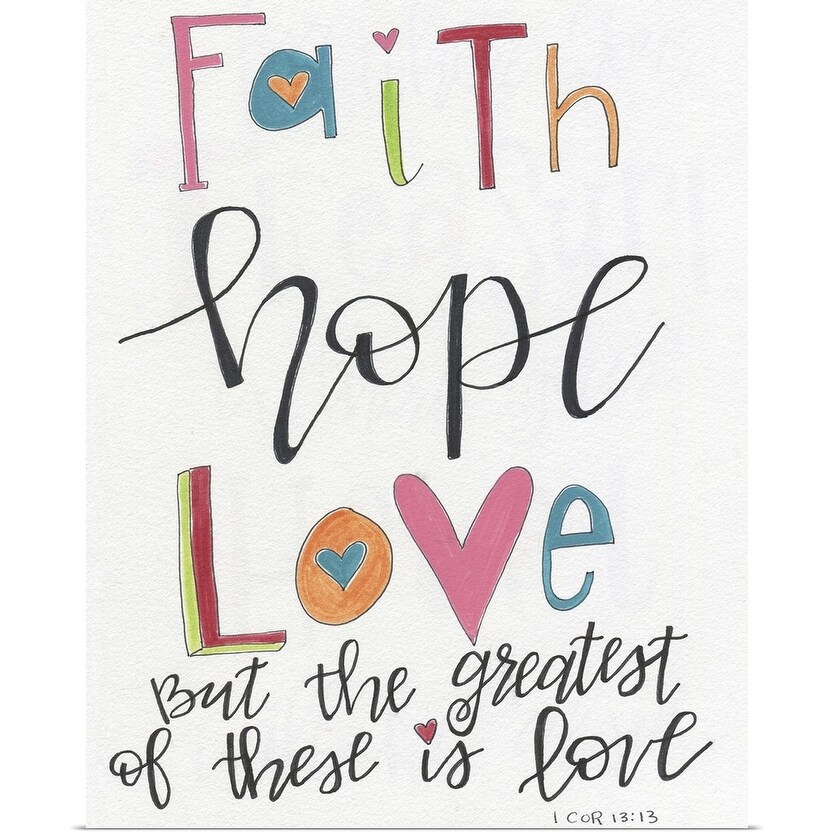 FaiTh
hope
LOVe
But the greatest
of these is love
1 COR 13:13